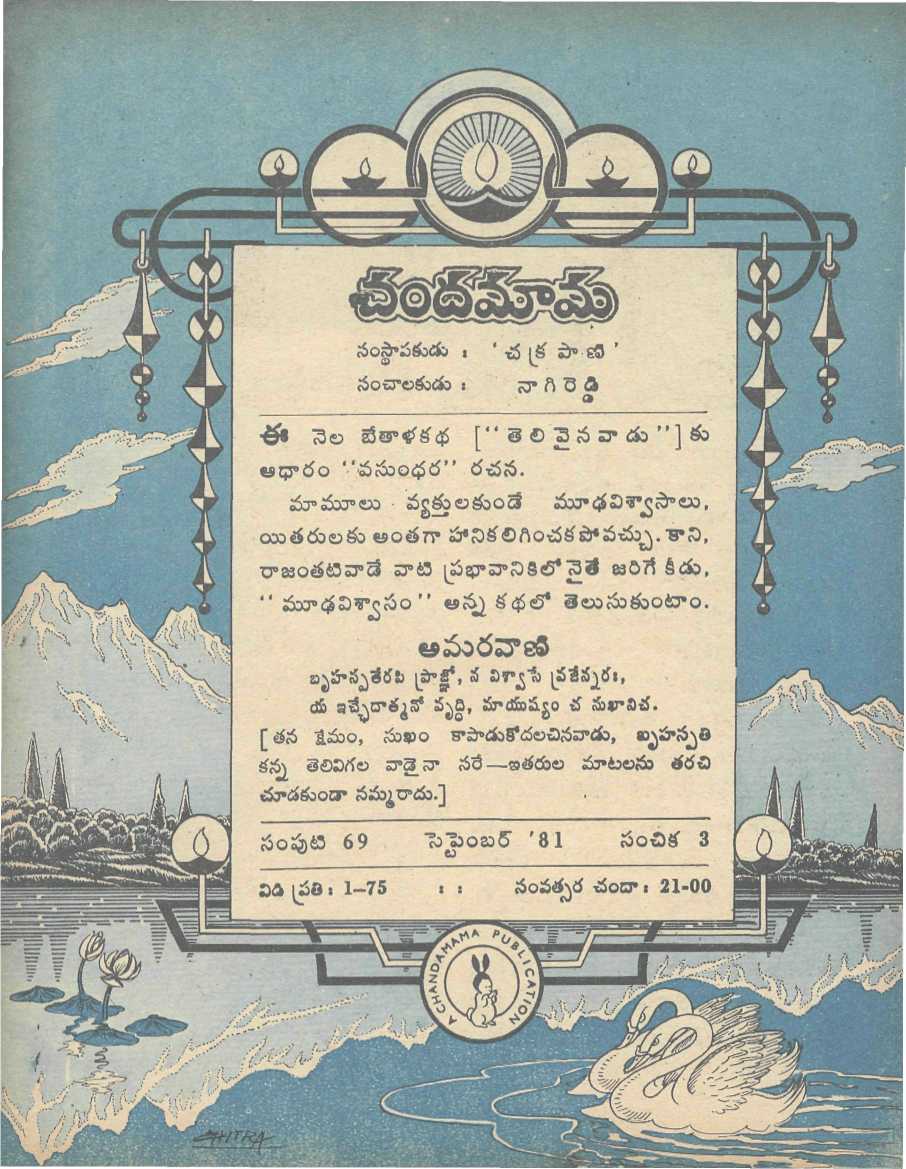 చందమామ
సంస్థాపకుడు : ' చ క్ర పా ణి '
సంచాలకుడు : నా గి రె డ్డి
ఈ నెల బేతాళకథ [" తె లి వై న వా డు "] కు
ఆధారం "వసుంధర" రచన.
మామూలు వ్యక్తులకుండే మూఢవిశ్వాసాలు,
యితరులకు అంతగా హానికలిగించకపోవచ్చు. కాని,
రాజంతటివాడే వాటి ప్రభావానికిలోనైతే జరిగే కీడు,
" మూఢవిశ్వాసం " అన్న కథలో తెలుసుకుంటాం.
అమరవాణి
బృహస్పతేరపి ప్రాజ్ఞో, న విశ్వాసే వ్రజేన్నరః,
య ఇచ్ఛేదాత్మనో వృద్ధి, మాయుష్యం చ సుఖానిచ.
[ తన క్షేమం, సుఖం కాపాడుకోదలచినవాడు, బృహస్పతి
కన్న తెలివిగల వాడైనా సరే—ఇతరుల మాటలను తరచి
చూడకుండా నమ్మరాదు.]
సంపుటి 69 సెప్టెంబర్ '81 సంచిక 3
విడి ప్రతి : 1–75 : : సంవత్సర చందా : 21-00
A CHANDAMAMA PUBLICATION
CHITRA